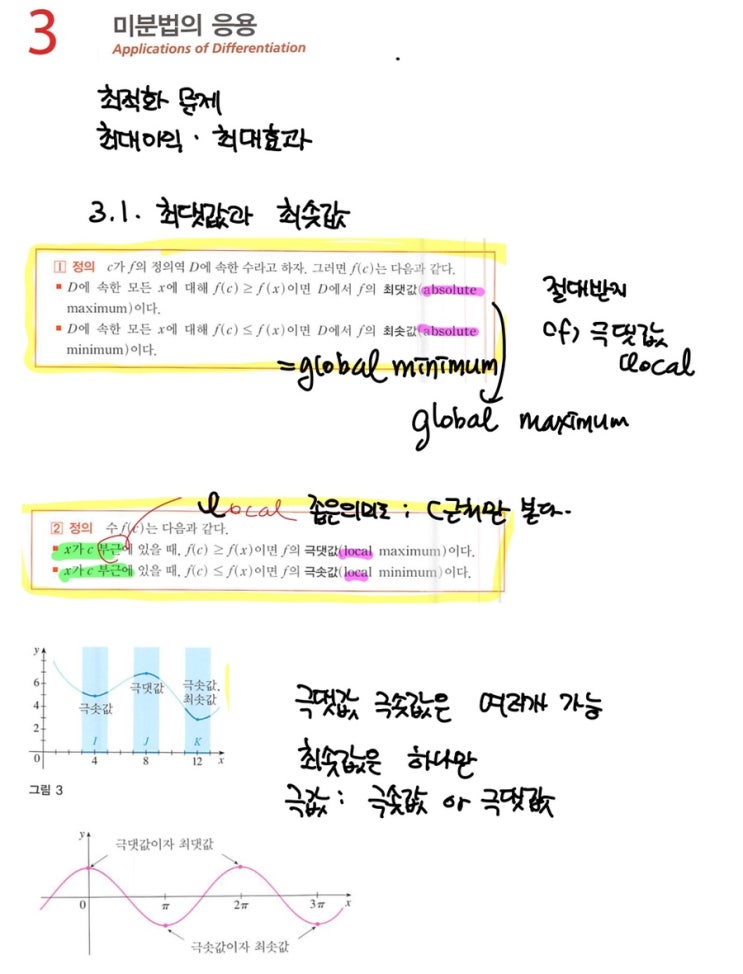 3 미분법의 응용
Applications of Differentiation
최적화 문제
최대이익 · 최대효과
3.1. 최댓값과 최솟값
1 정의 c가 f의 정의역 D에 속한 수라고 하자. 그러면 f(c)는 다음과 같다.
▪ D에 속한 모든 x에 대해 f(c) ≥ f(x)이면 D에서 f의 최댓값(absolute
maximum)이다.
▪ D에 속한 모든 x에 대해 f(c) ≤ f(x)이면 D에서 f의 최솟값(absolute
minimum)이다.
= global minimum
global maximum
절대반지
cf) 극댓값
local
local 좁은의미로 : c근처만 본다.
2 정의 수 f(c)는 다음과 같다.
▪ x가 c 부근에 있을 때, f(c) ≥ f(x)이면 f의 극댓값(local maximum)이다.
▪ x가 c 부근에 있을 때, f(c) ≤ f(x)이면 f의 극솟값(local minimum)이다.
y
6
4
2
0
극솟값
극댓값
극솟값,
최솟값
I J K
4 8 12 x
그림 3
극댓값 극솟값은 여러개 가능
최솟값은 하나만
극값 : 극솟값 or 극댓값
y
극댓값이자 최댓값
0 π 2π 3π x
극솟값이자 최솟값